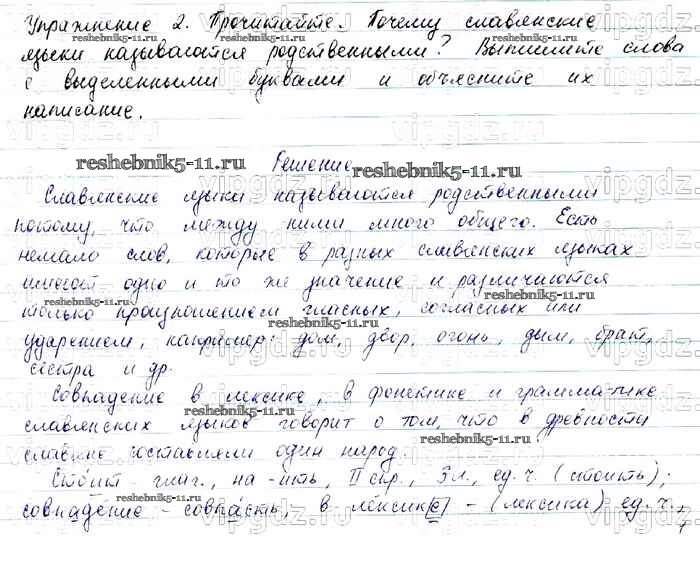 Упражнение 2. Прочитайте. Почему славянские
языки называются родственными? Выпишите слова
с выделенными буквами и объясните их
написание.
reshebnik5-11.ru Решение
Славянские языки называются родственными
потому, что между ними много общего. Есть
немало слов, которые в разных славянских языках
имеют одно и то же значение и различаются
только произношением гласных, согласных или
ударением, например: дом, двор, огонь, дым, брат,
сестра и др.
Совпадение в лексике, в фонетике и грамматике
славянских языков говорит о том, что в древности
славяне составляли один народ.
Стоит глаг., на -ить, II спр., 3 л., ед. ч. (стоить);
совпадение - совпасть; в лексик[е] - (лексика) ед. ч.,